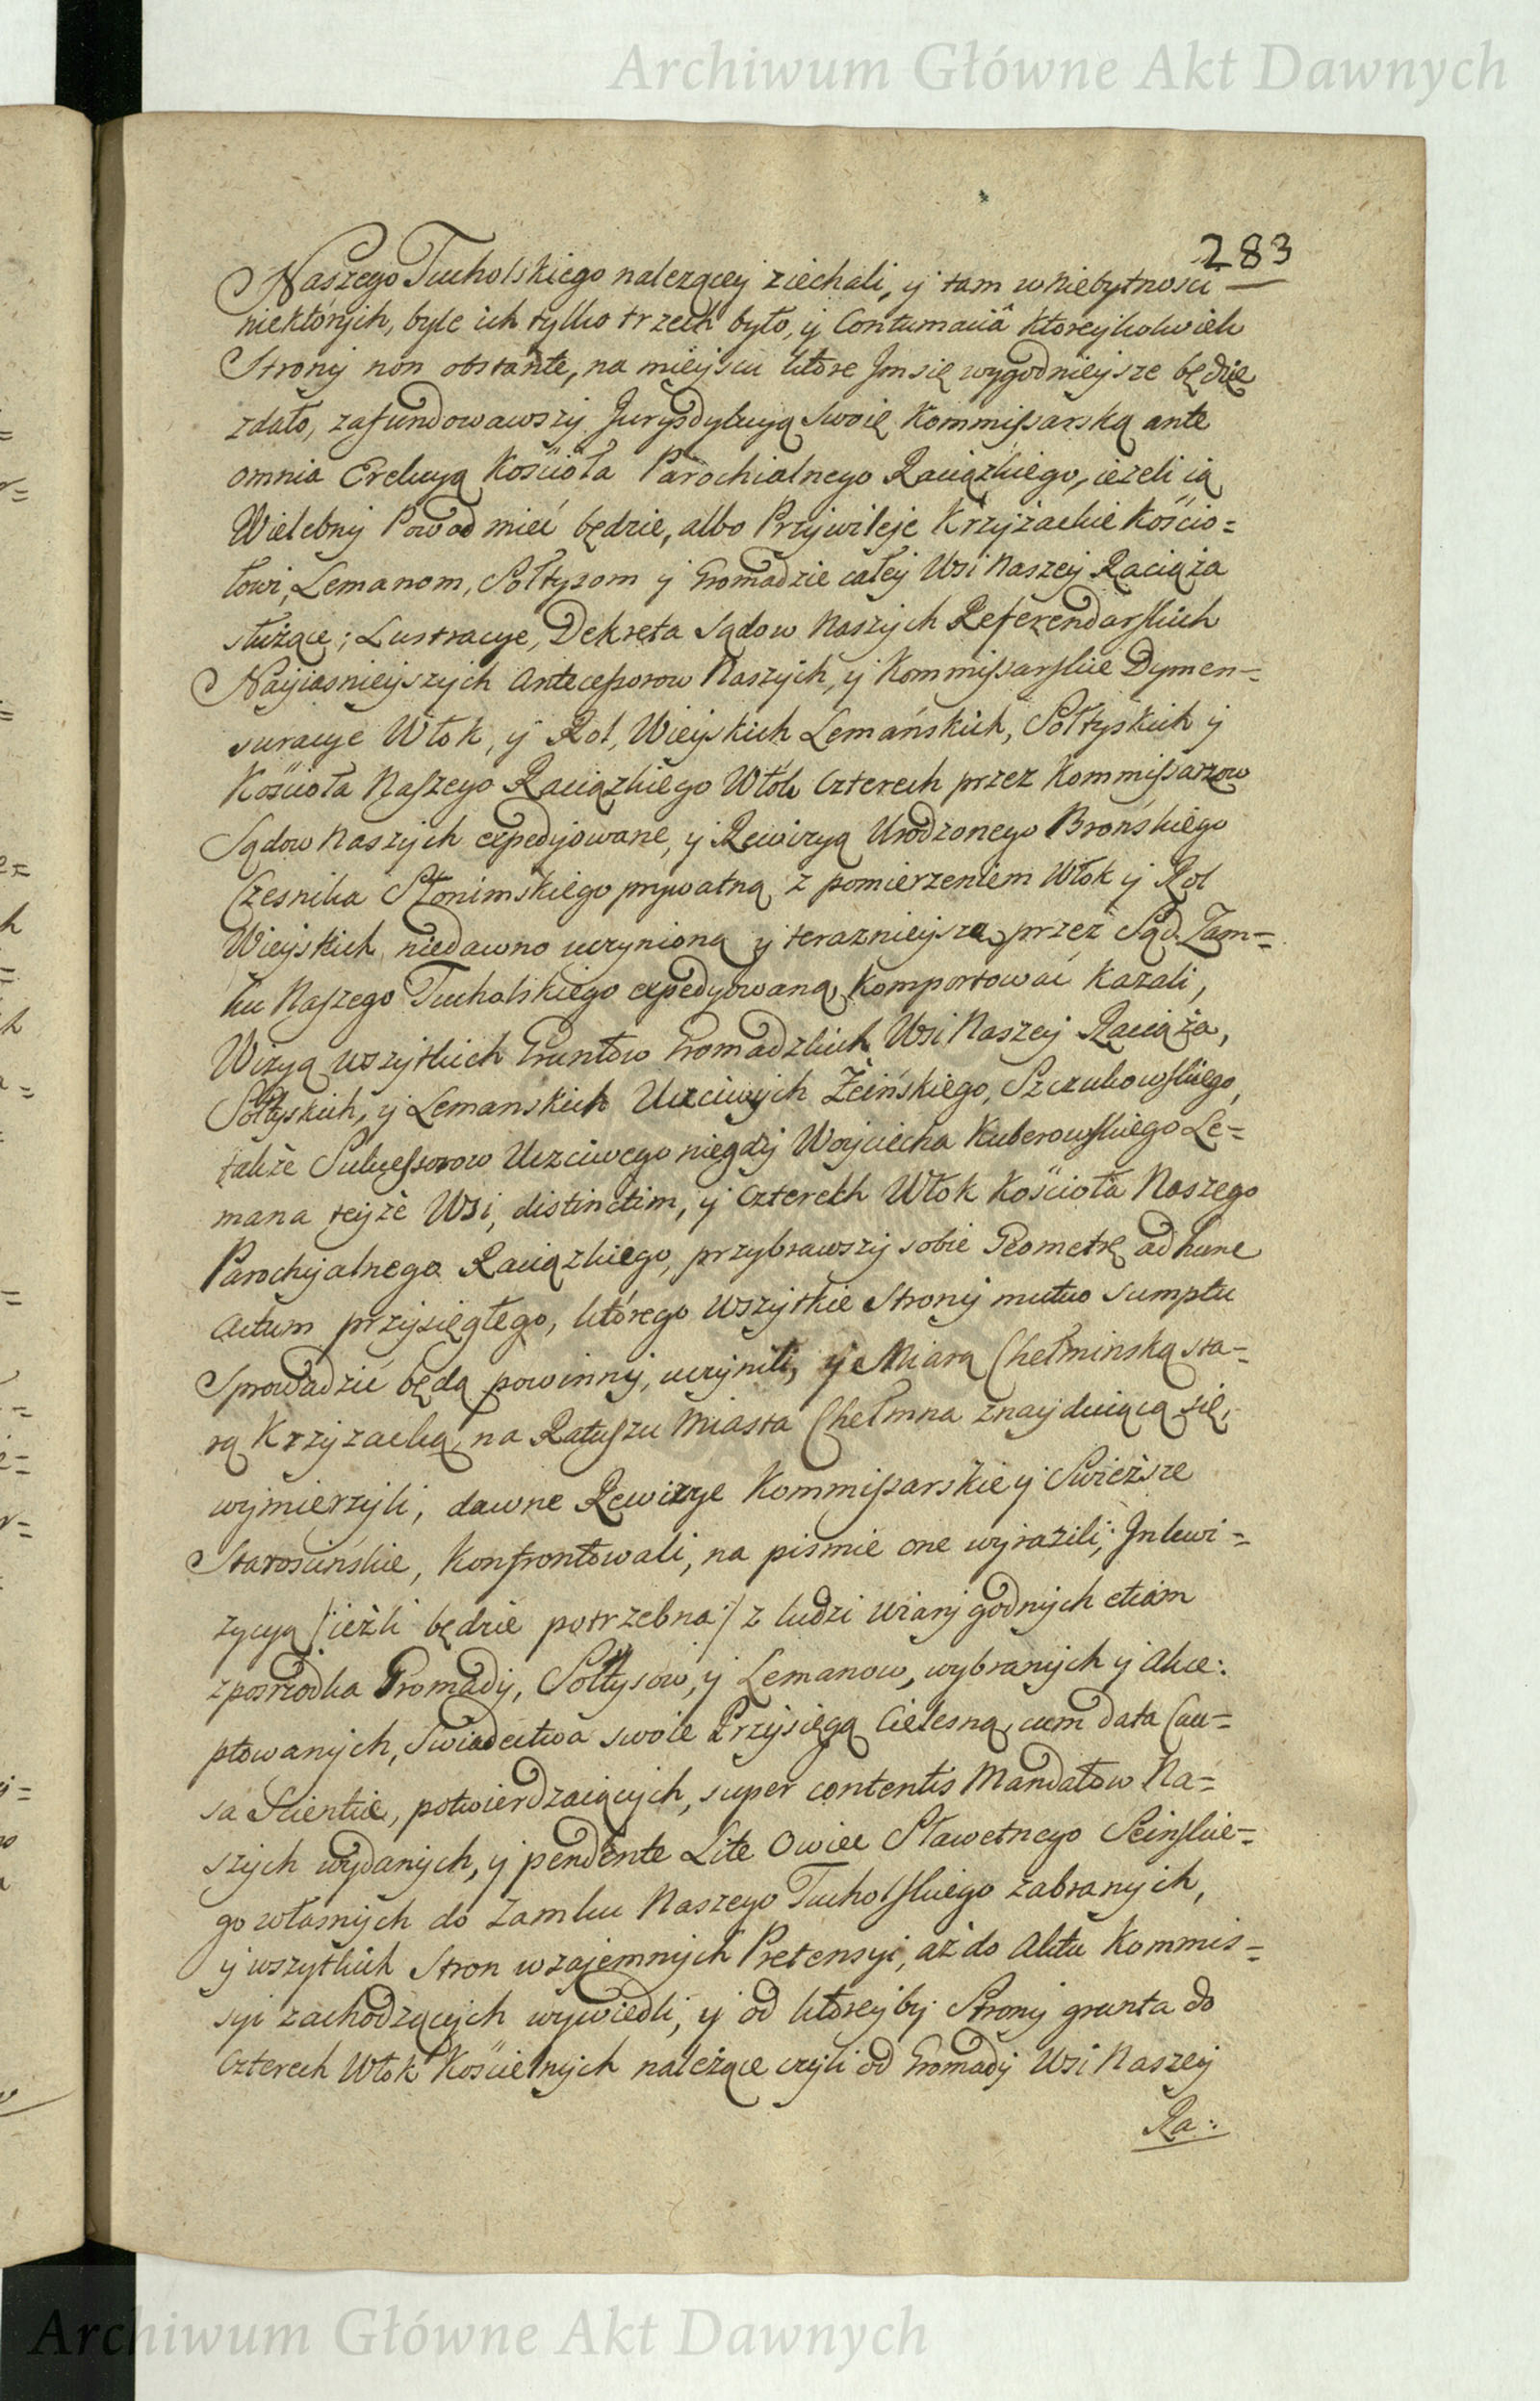 Archiwum Główne Akt Dawnych
283
Naszego Tucholskiego należącey ziechali, y tam w niebytnosci
niektórych, byle ich tylko trzech było, y Contumaciâ ktoreykolwiek
Strony non obstante, na mieyscu które Jm się wygodnieysze będzie
zdało, zafundowawszy Jurysdykcyą swoię Kommissarską ante
omnia Erekcyą Kościoła Parochialnego Raciązkiego, ieżeli ią
Wielebny Powod mieć będzie, albo Przywileje Krzyżackie Kościo=
łowi, Lemanom, Sołtysom y Gromadzie całey Wsi Naszey Raciąża
służące; Lustracye, Dekreta Sądow Naszych Referendarskich
Nayiasnieyszych Antecessorow Naszych, y Kommissarskie Dymen=
suracye Włok, y Rol, Wieyskich Lemańskich, Sołtyskich y
Kościoła Naszego Raciązkiego Włók Czterech przez Kommissarzow
Sądow Naszych expedyowane, y Rewizyą Urodzonego Brońskiego
Czesnika Słonimskiego prywatną z pomierzeniem Włok y Rol
Wieyskich niedawno uczynioną y teraznieyszą przez Sąd Zam=
ku Naszego Tucholskiego expedyowaną, komportować kazali,
Wizyą wszystkich Gruntow Gromadzkich Wsi Naszey Raciąża,
Sołtyskich, y Lemanskich Uczciwych Żcińskiego, Szczukowskiego,
także Sukcessorow Uczciwego niegdy Woyciecha Kuberowskiego Le=
mana teyże Wsi, distinctim, y Czterech Włok Kościoła Naszego
Parochyalnego Raciązkiego, przybrawszy sobie Geometrę ad hunc
actum przysięgłego, którego wszystkie Strony mutuo sumptu
sprowadzić będą powinny, uczynili, y Miarą Chełminską sta=
rą Krzyzacką, na Ratuszu Miasta Chełmna znayduiącą się,
wymierzyli, dawne Rewizye Kommissarskie y Swieższe
Starościńskie, Konfrontowali, na pismie one wyrazili; Inkwi=
zycyą /:ieżli będzie potrzebna:/ z ludzi wiary godnych etiam
z posrzodka Gromady, Sołtysow, y Lemanow, wybranych y akce:
ptowanych, Swiadectwa swoie Przysięgą Cielesną, cum data Cau=
sa Scientiæ, potwierdzaiących, super contentis Mandatow Na=
szych wydanych, y pendente Lite Owiec Sławetnego Scinskie=
go własnych do Zamku Naszego Tucholskiego zabranych,
y wszystkich Stron wzajemnych Pretensyi, aż do Aktu Kommis=
syi zachodzących wywiedli, y od ktoreyby Strony grunta do
Czterech Włok Kościelnych należące czyli od Gromady Wsi Naszey
Ra:
Archiwum Główne Akt Dawnych